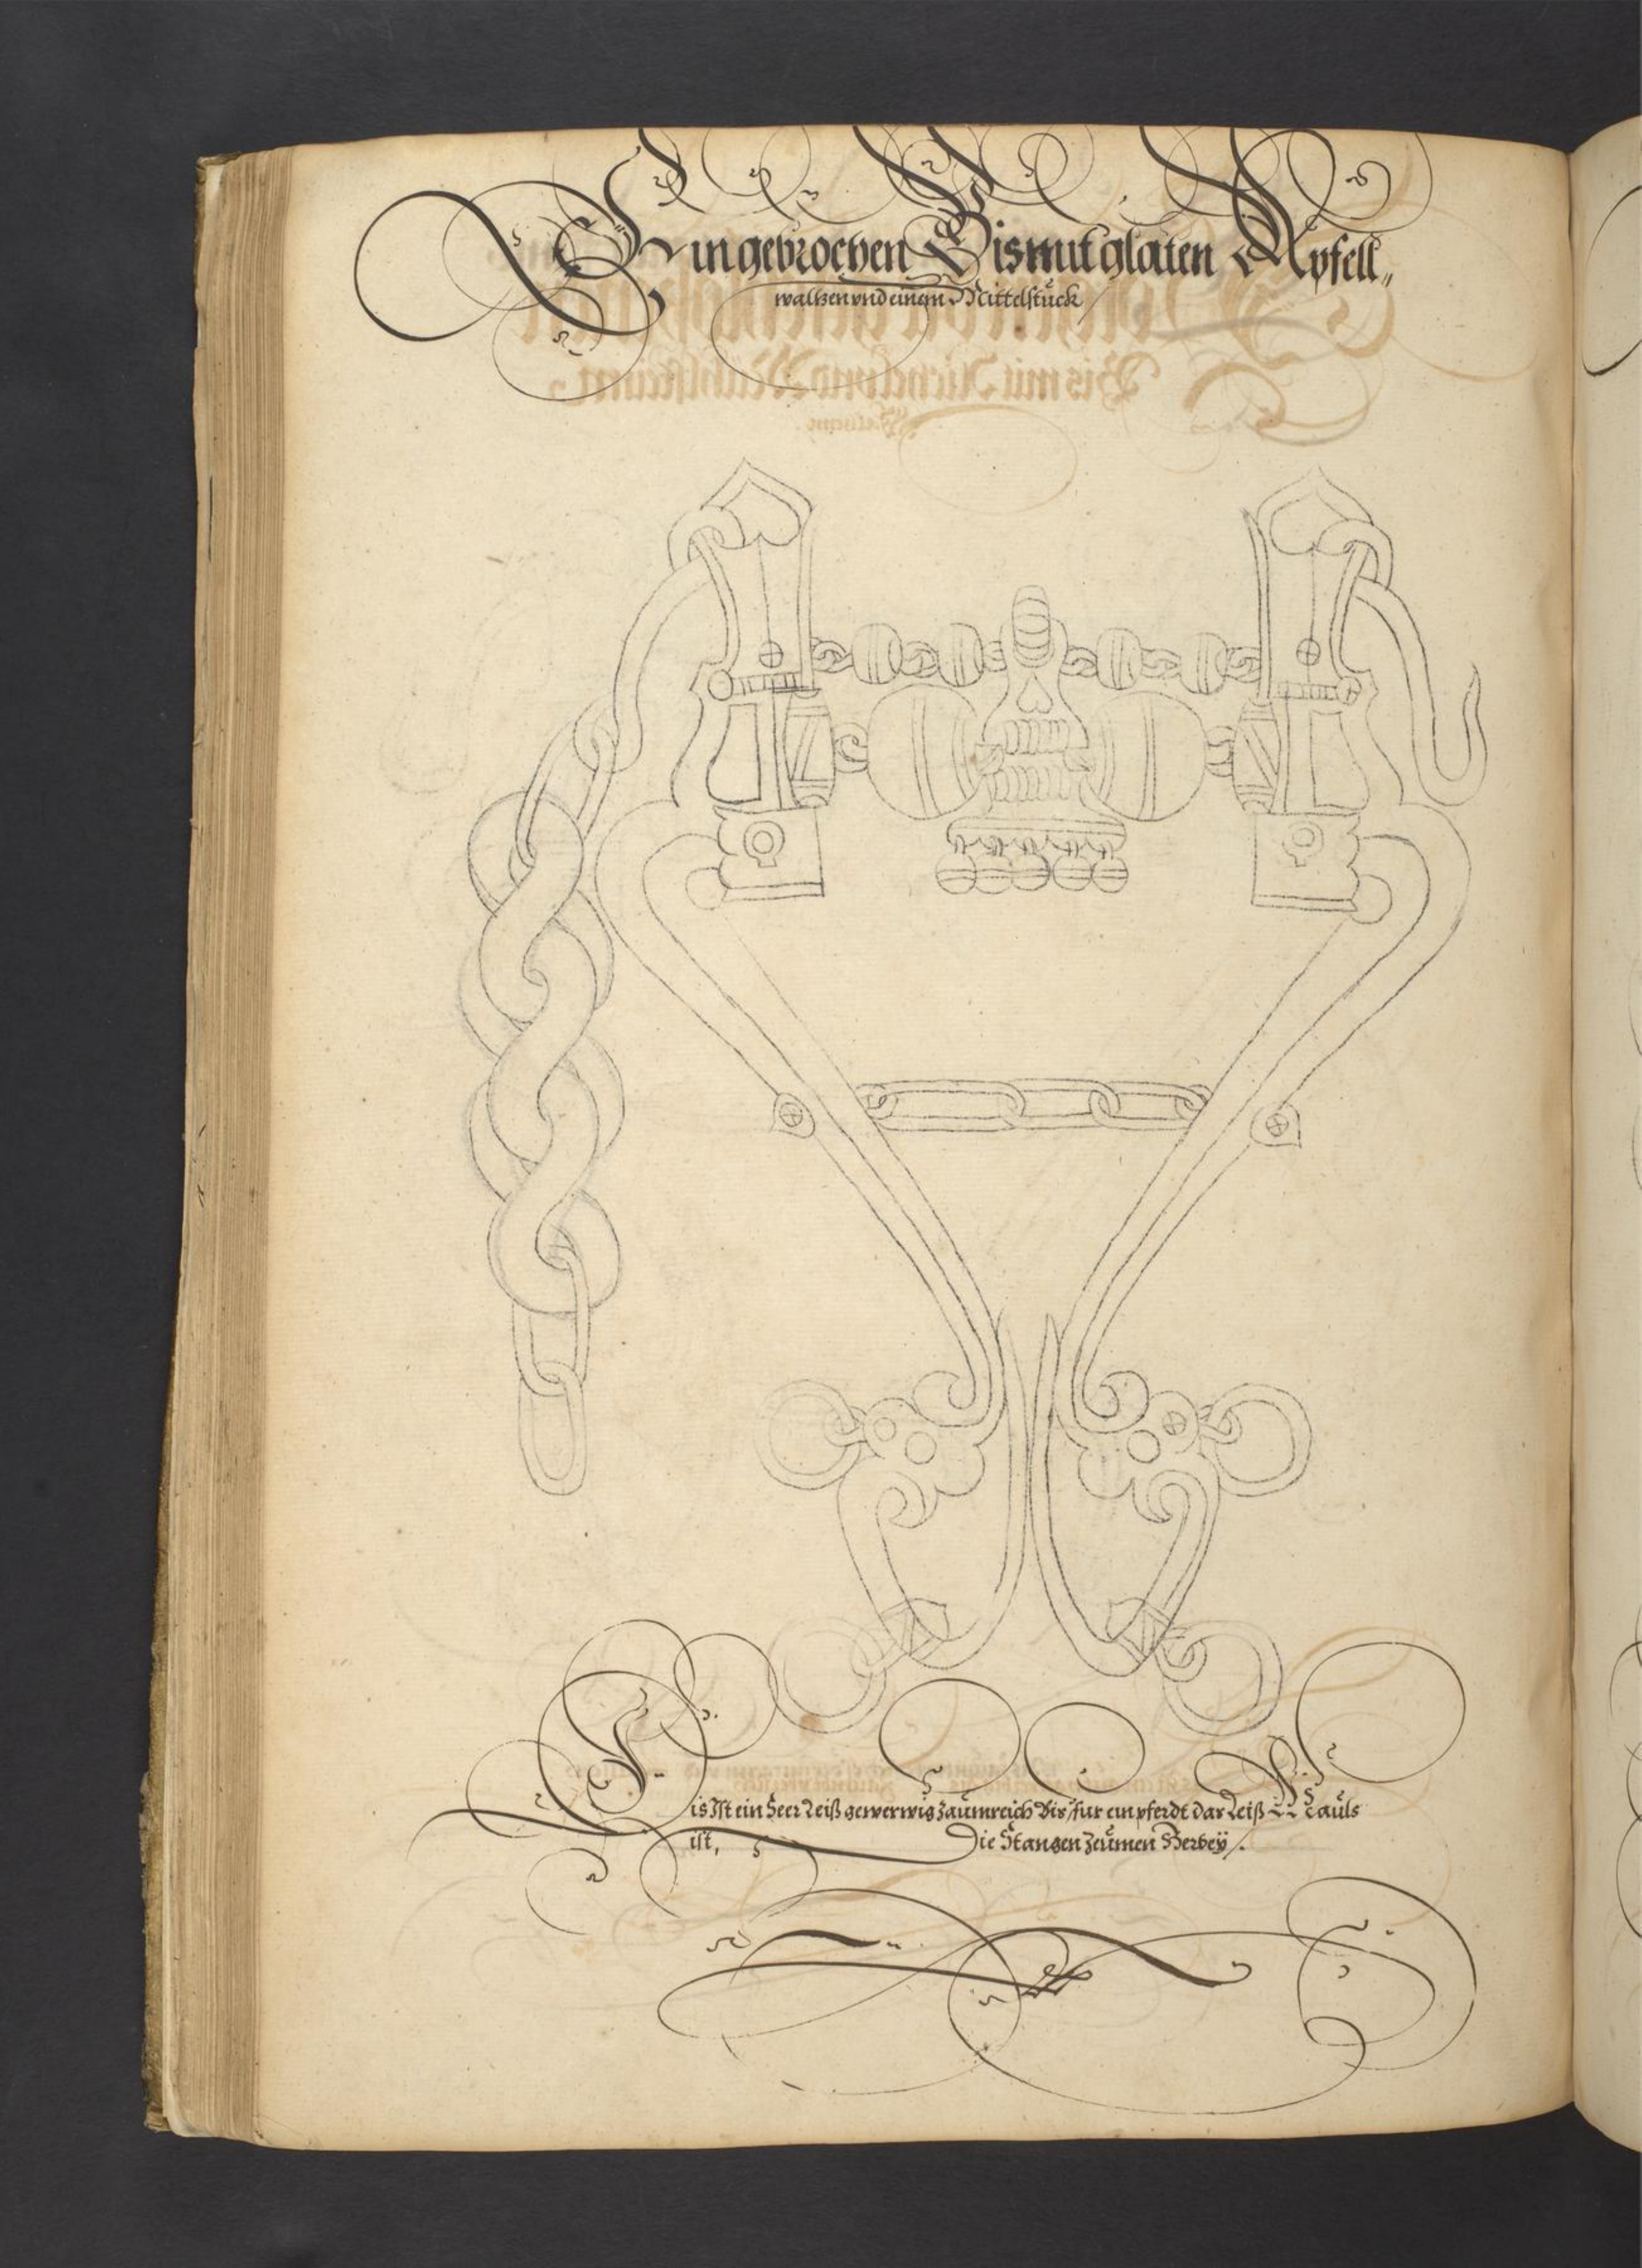 Ein gebrochen Bis mut glaten Apfell„
waltzen vnd einem Mittelstück
is Ist ein Seer Leiß gewerwig zaumreich Bis für ein pferdt dar Leiß Mauls
ist, Die Stangen zeumen Herbeÿ.